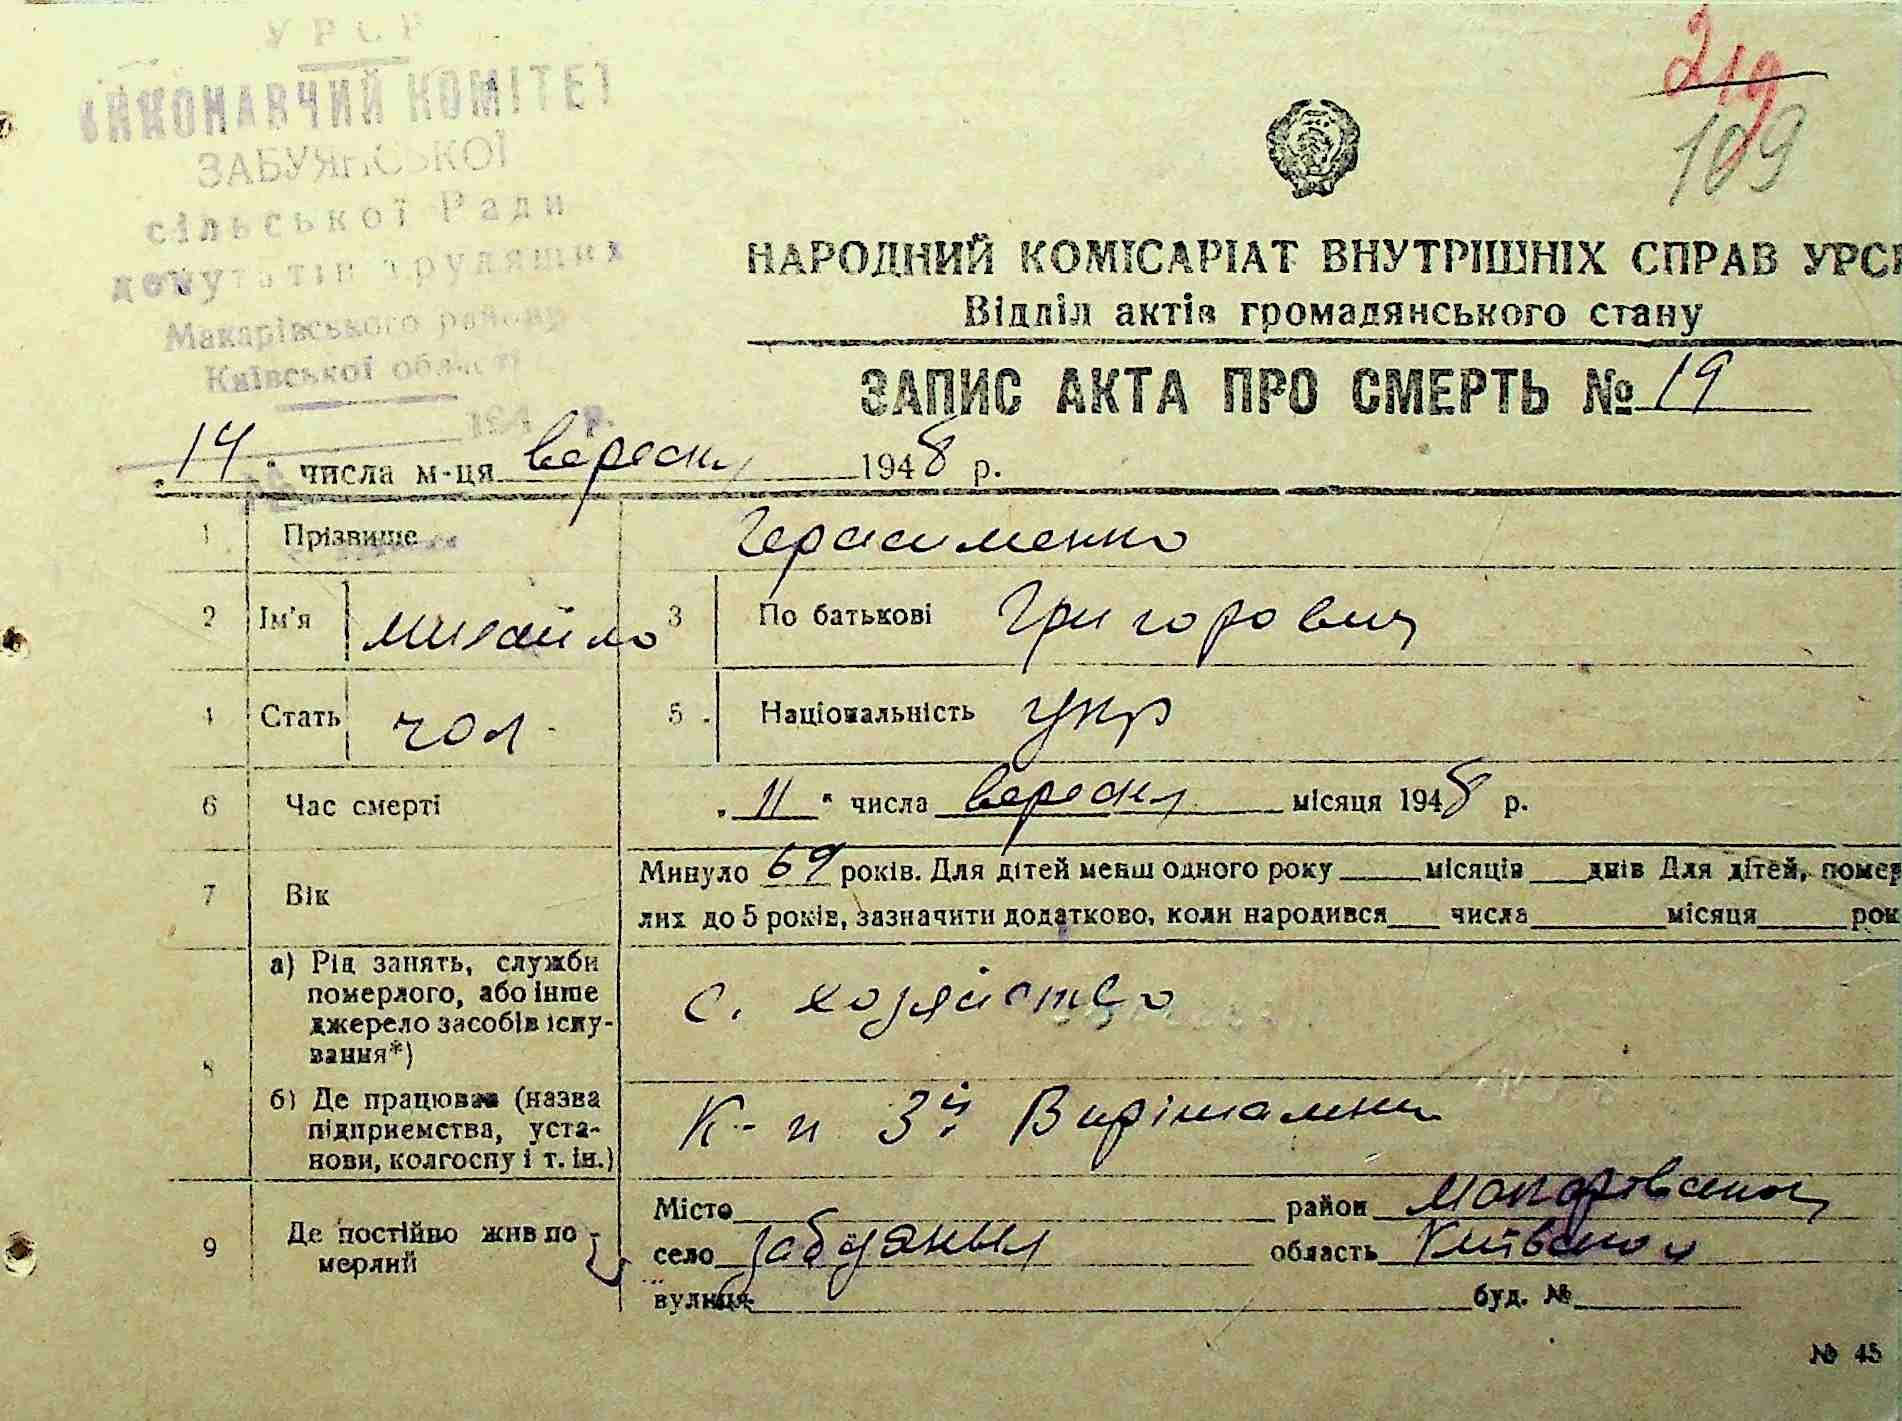 УРСР
ВИКОНАВЧИЙ КОМІТЕТ
ЗАБУЯНСЬКОЇ
сільської Ради
депутатів трудящих
Макарівського району
Київської області
194 р.
219
109
НАРОДНИЙ КОМІСАРІАТ ВНУТРІШНІХ СПРАВ УРСР
Відділ актів громадянського стану
ЗАПИС АКТА ПРО СМЕРТЬ № 19
"14" числа м-ця вересня 1948 р.
1 Прізвище Герасименко
2 Ім'я Михайло 3 По батькові Григорович
4 Стать чол 5 Національність укр
6 Час смерті "11" числа вересня місяця 1948 р.
7 Вік Минуло 69 років. Для дітей менш одного року місяців днів Для дітей, помер
лих до 5 років, зазначити додатково, коли народився числа місяця рок
8 а) Рід занять, служби померлого, або інше джерело засобів існу-вання*) с. хозяйство
б) Де працював (назва підприємства, уста-нови, колгоспу і т. ін.) К-п 3й Вирішальний
9 Де постійно жив по мерлий
Місто район Макарівский
село Забуяння область Київской
вулиця буд. №
№ 45